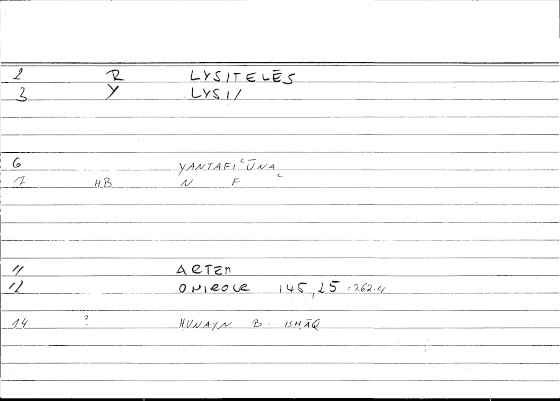 2 R LYSITELĒS
3 Y LYSI/
6 YANTAFIʿŪNA
7 HB N F ʿ
11 ARTEM
12 ONIROCR 145,25 = 262.4
14 ? HUNAYN B. ISHĀQ